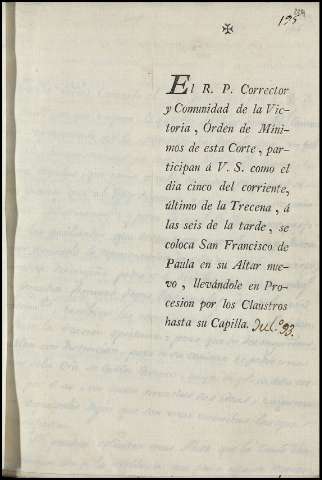 195
El R. P. Corrector
y Comunidad de la Vic-
toria, Órden de Míni-
mos de esta Corte, par-
ticipan á V. S. como el
dia cinco del corriente,
último de la Trecena, á
las seis de la tarde, se
coloca San Francisco de
Paula en su Altar nue-
vo, llevándole en Pro-
cesion por los Claustros
hasta su Capilla. Jul.º 93.